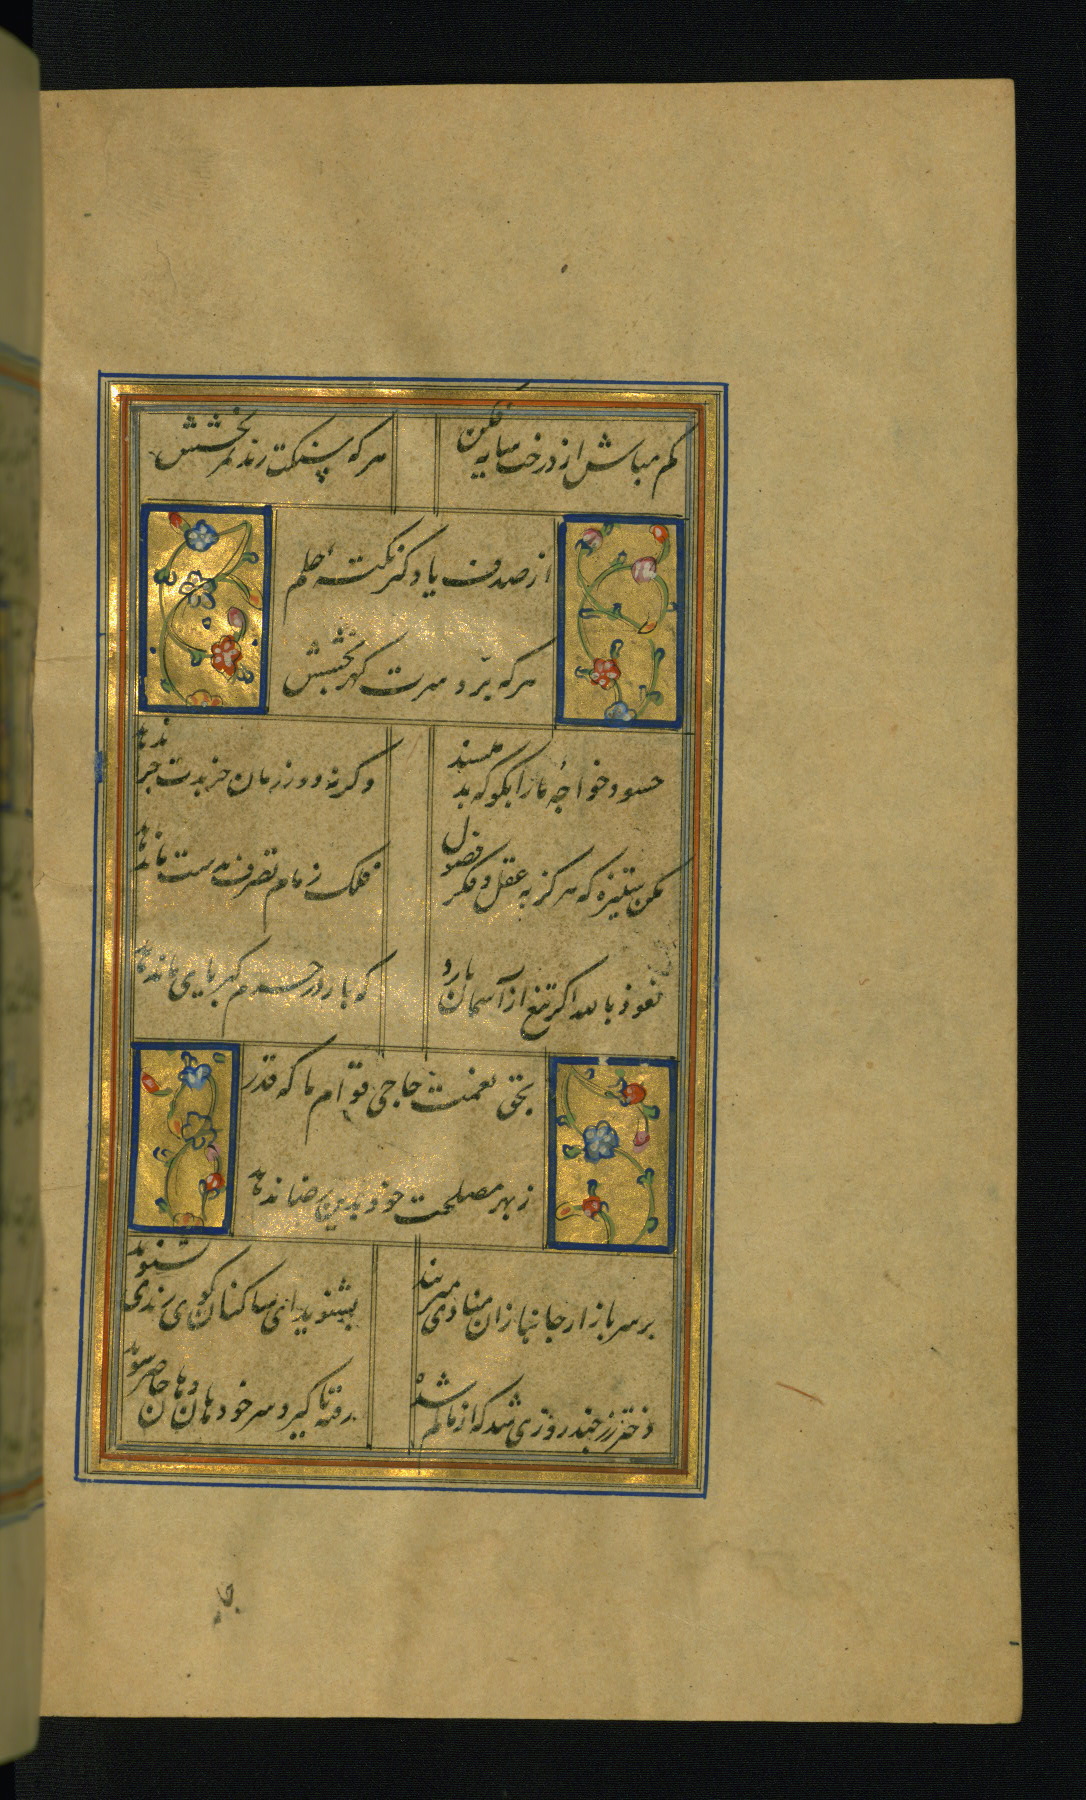 کم مباش از درخت سایه فکن
هر که سنکت زند ثمر بخشش
از صدف یاد کیر نکته حلم
هر که برد سرت کهر بخشش
حسود خواجه ما را بکو که بد مپسند
وکرنه دور زمان جز بدت جزا ندهد
مکن ستیزه که هرکز به عقل و فکر فضول
فلک زمام تصرف بدست ما ندهد
نعوذ بالله اکر تیغ از آسمان بارد
که بار در حرم کبریای ما ندهد
بحق نعمت حاجی قوام ما که قدر
ز بهر مصلحت خود بدین رضا ندهد
بر سر بازار جانبازان منادی میزنند
بشنوید ای ساکنان کوی رندی بشنوید
دختر رز چند روزی شد که از ما کم شده
رفته تا کیرد سر خود هان و هان حاضر شوید